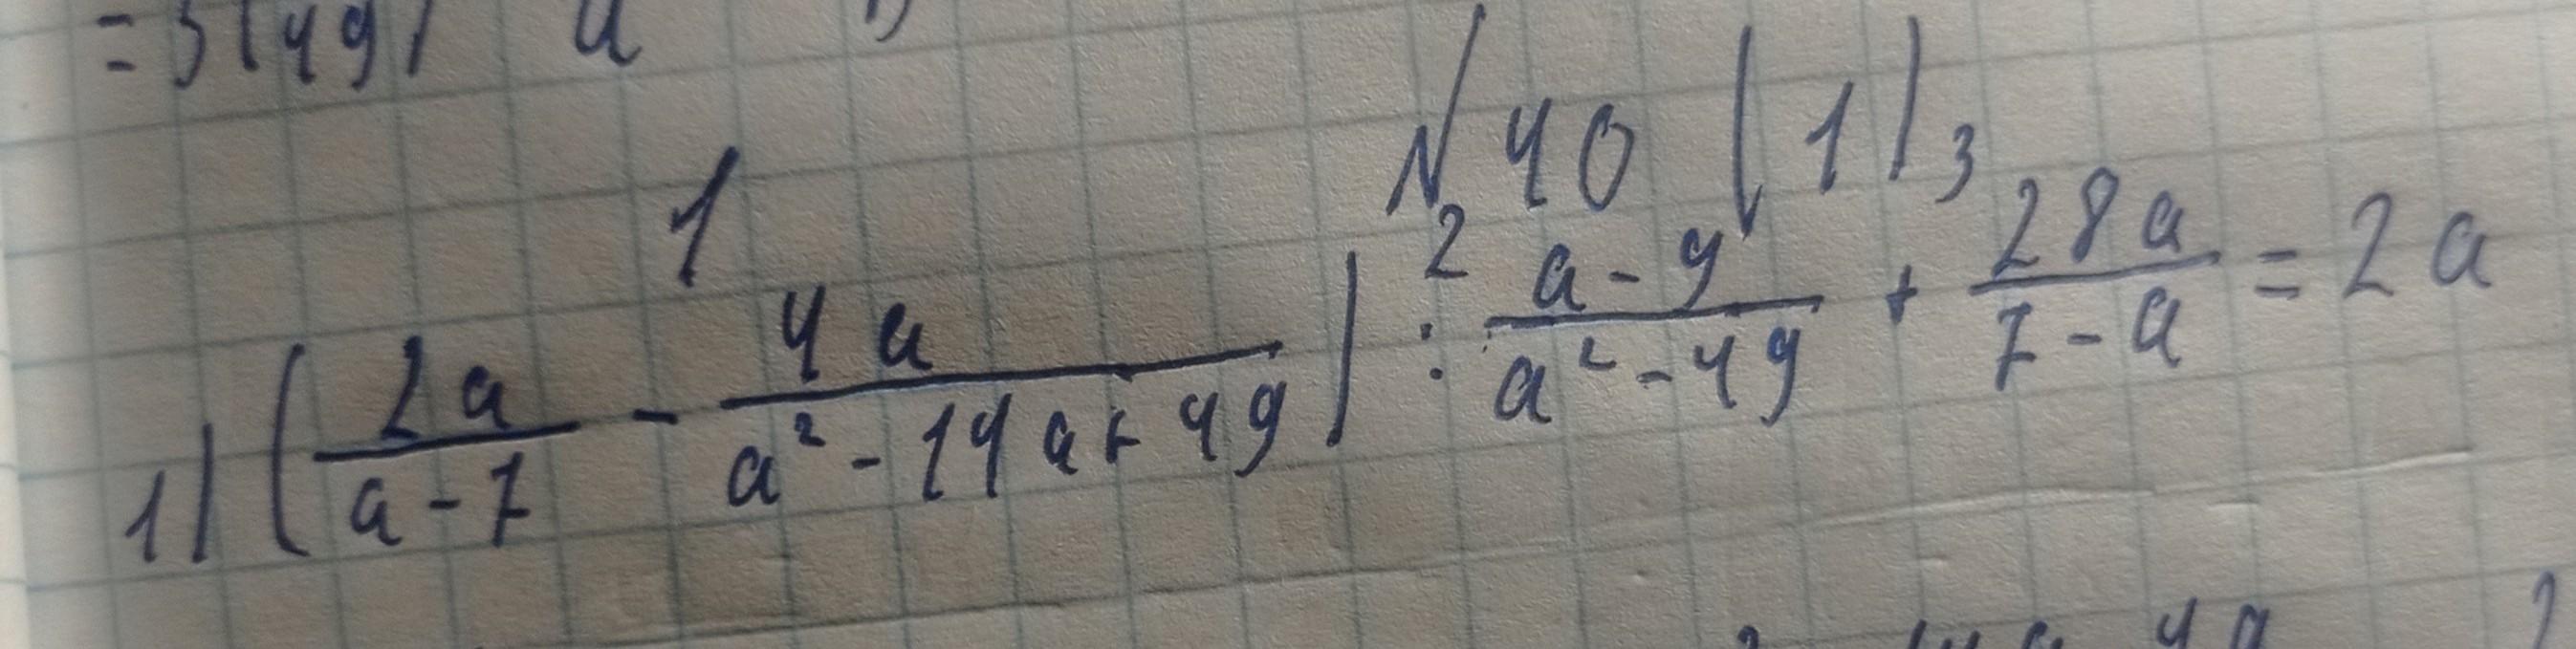 = 3(49) a
№40 (1)
1 2 3
1) (2a/(a-7) - 4a/(a²-14a+49)) : (a-9)/(a²-49) + 28a/(7-a) = 2a